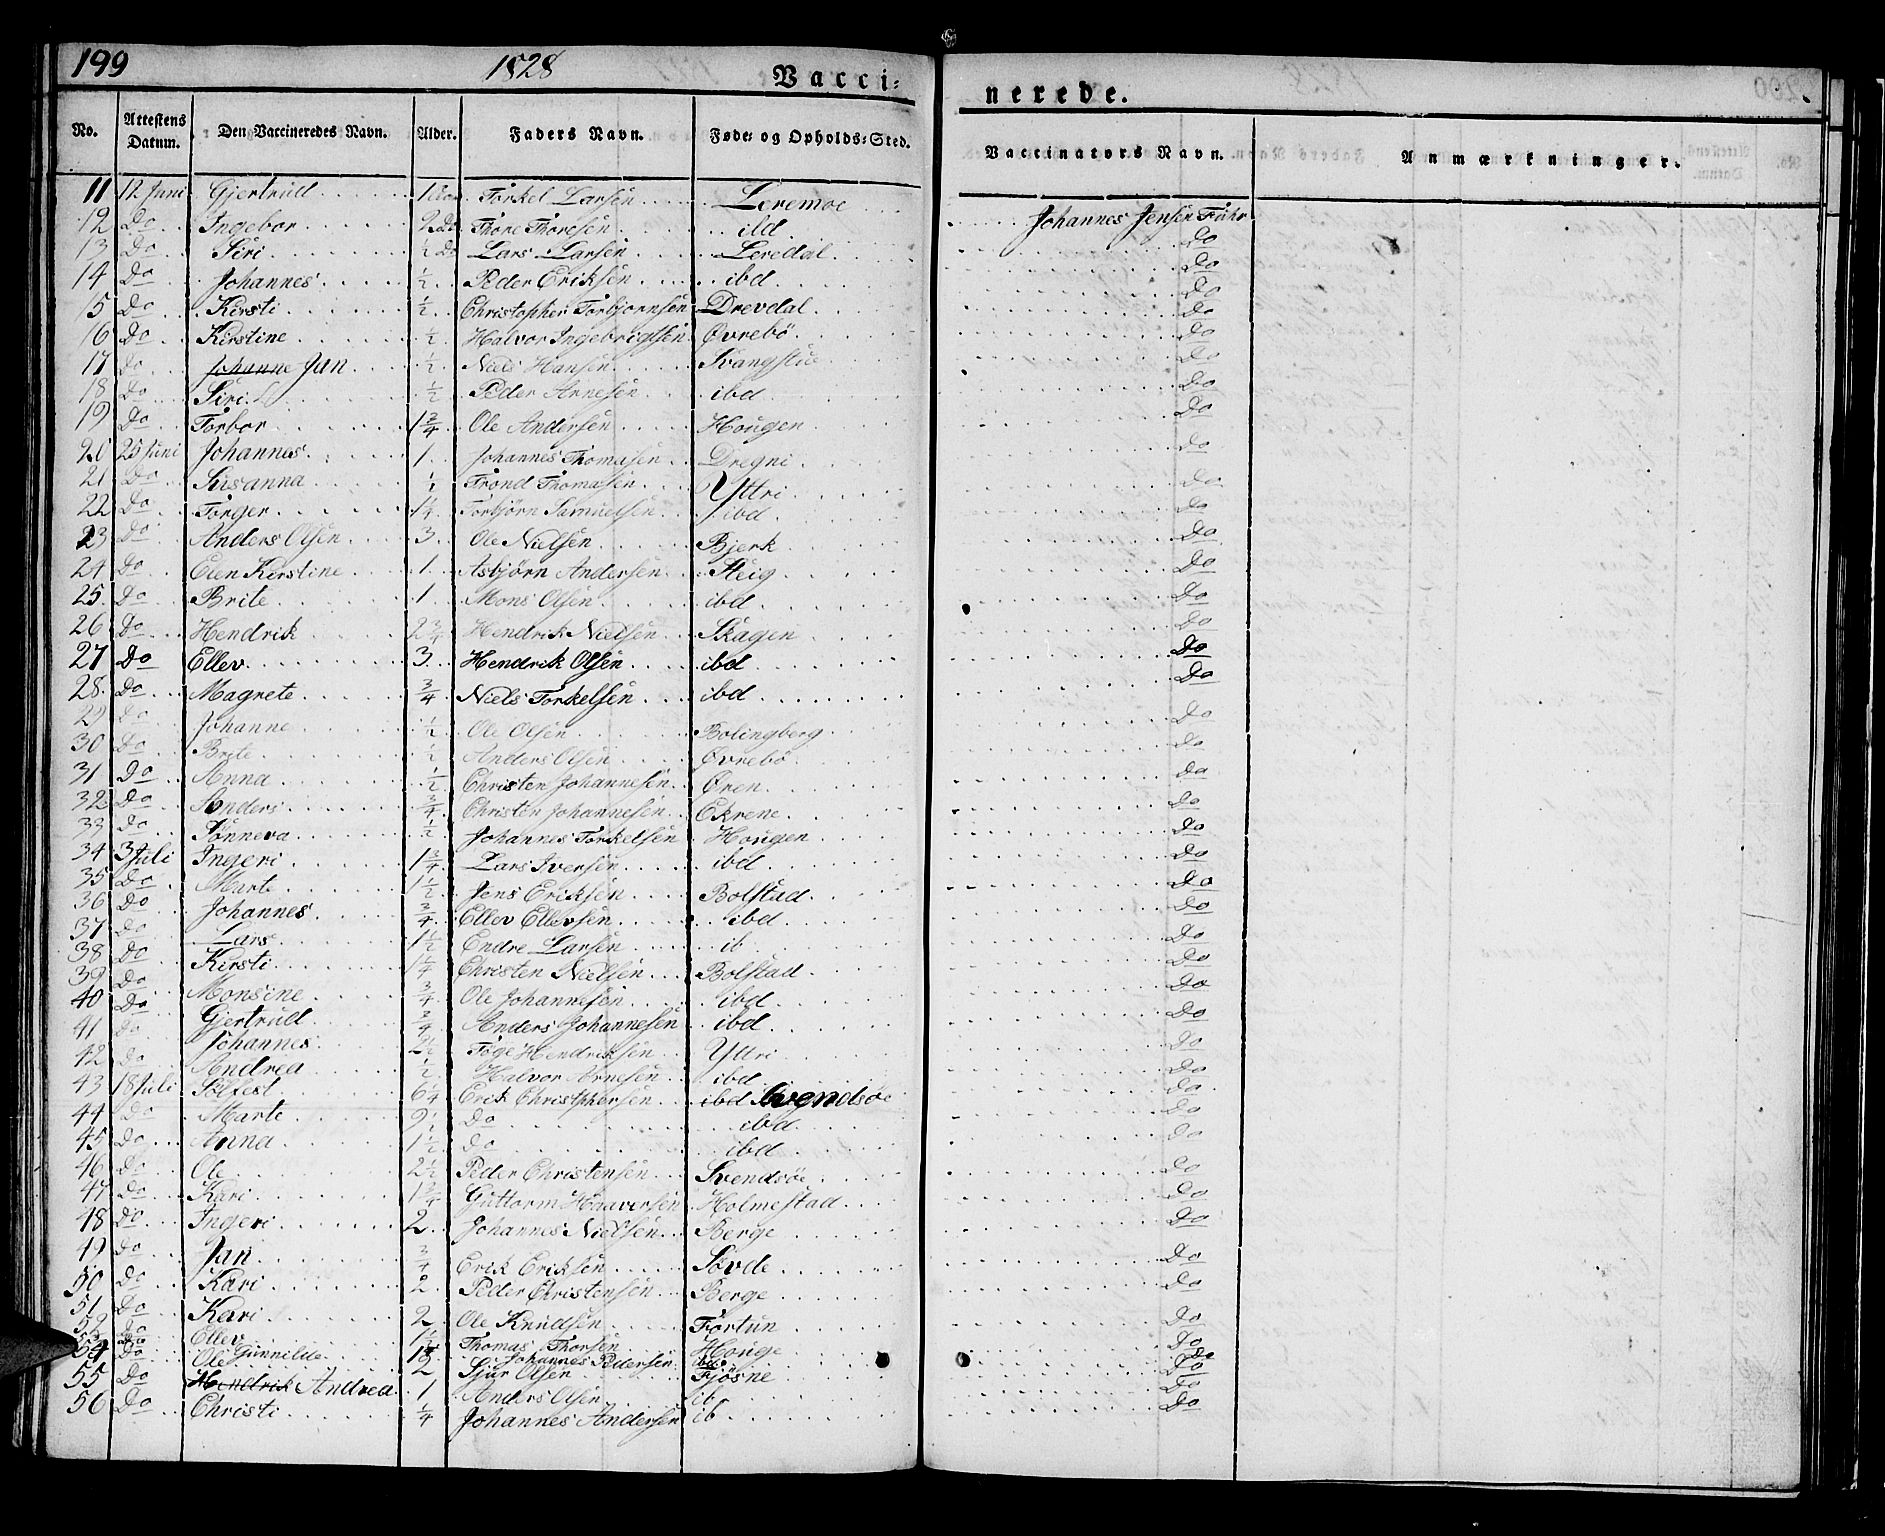 199 1828 Vacci= nerede.
No. Attestens Datum. Den Vaccineredes Navn. Alder. Faders Navn. Føde= og Opholds=Sted. Vaccinators Navn. Anmærkninger.
11 12 Juni Gjertrud 1 Torkel Larsen Leremoe Johannes Jensen
12 Do Ingebor 2 Do Thore Thoresen ild Do
13 Do Siri ½ Do Lars Larsen Leredal Do
14 Do Johannes ½ Peder Eriksen ibd Do
15 Do Kirsti ½ Christopher Torbjornsen Drevdal Do
16 Do Kirstine ½ Halvor Ingebrigtsen Øvrebö Do
17 Do Johanne Jan ½ Niels Hansen Svangstue Do
18 Do Siri ½ Peder Arnesen ibd Do
19 Do Torbor 1¾ Ole Andersen Hougen Do
20 25 Juni Johannes 1 Johannes Thomasen Dregni Do
21 Do Susanna Trond Thomasen Yttri Do
22 Do Torger 1¼ Torbjörn Samuelsen ibd Do
23 Do Anders Olsen 3 Ole Nielsen Bjerk Do
24 Do Elen Kirstine 1 Asbjörn Andersen Steig Do
25 Do Brite 1 Mons Olsen ibd Do
26 Do Hendrik 2¾ Hendrik Nielsen Skagen Do
27 Do Ellev 3 Hendrik Olsen ibd Do
28 Do Magrete ¾ Niels Torkelsen ibd Do
29 Do Johanne ½ Ole Olsen Bolingberg Do
30 Do Brite ½ Anders Olsen Øvrebö Do
31 Do Anna ½ Christen Johannesen Øren Do
32 Do Anders ¾ Christen Johannesen Ekrene Do
33 Do Sönneva ½ Johannes Torkelsen Hougen Do
34 3 Juli Ingeri 1¾ Lars Iversen ibd Do
35 Do Marte 1½ Jens Eriksen Bolstad Do
36 Do Johannes ¾ Ellev Ellevsen ibd Do
37 Do Lars 1½ Endre Larsen ib Do
38 Do Kirsti 1¼ Christen Nielsen Bolstad Do
39 Do Monsine ¾ Ole Johannesen ibd Do
40 Do Gjertrud ¾ Anders Johannesen ibd Do
41 Do Johannes 2½ Töge Hendriksen Yttri Do
42 Do Andrea ½ Halvor Arnesen ibd Do
43 18 Juli Solfest 6¼ Erik Christophersen ibd Svendsöe Do
44 Do Marte Do ibd Do
45 Do Anna 1½ Do ibd Do
46 Do Ole 2½ Peder Christensen Svendsöe Do
47 Do Kari 1¾ Guttorm Haaversen Holmestad Do
48 Do Ingeri 2 Johannes Nielsen Berge Do
49 Do Jan ¾ Erik Eriksen Sövde Do
50 Do Kari 2 Peder Christensen Berge Do
51 Do Kari 2 Ole Knudsen Fortun Do
52 Do Ellev 1½ Thomas Thorsen Houge Do
53 Do Gunnilde Johannes Pedersen ibd Do
54 Do Ole 2 Sjur Olsen Fjösne Do
55 Do Hendrik Andrea 1 Anders Olsen ib Do
56 Do Christi ¼ Johannes Andersen ib Do